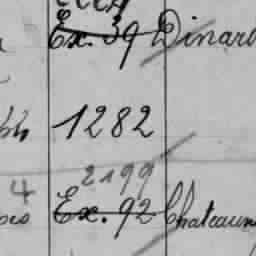 Ex. 39 Dinard
1282
2199
4
Ex. 92 Chateaun